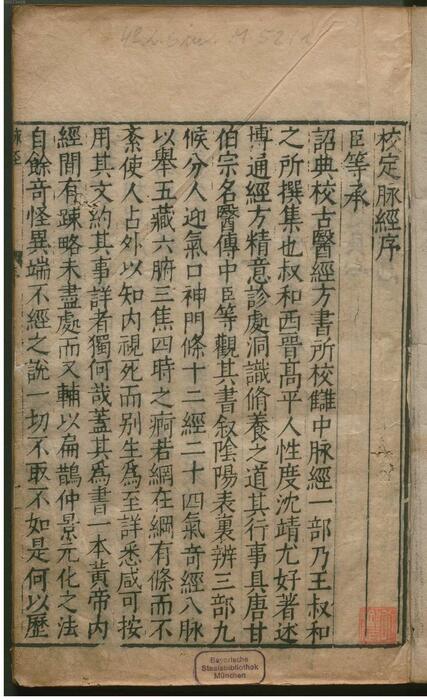 校定脉經序
臣等承
詔典校古醫經方書所校讎中脉經一部乃王叔和
之所撰集也叔和西晉高平人性度沈靖尤好著述
博通經方精意診處洞識脩養之道其行事具唐甘
伯宗名醫傳中臣等觀其書敘陰陽表裏辨三部九
候分人迎氣口神門條十二經二十四氣奇經八脉
以舉五藏六腑三焦四時之痾若網在綱有條而不
紊使人占外以知内視死而别生爲至詳悉咸可按
用其文約其事詳者獨何哉蓋其爲書一本黄帝内
經間有疎略未盡處而又輔以扁鵲仲景元化之法
自餘奇怪異端不經之說一切不取不如是何以歷
Bayerische
Staatsbibliothek
München